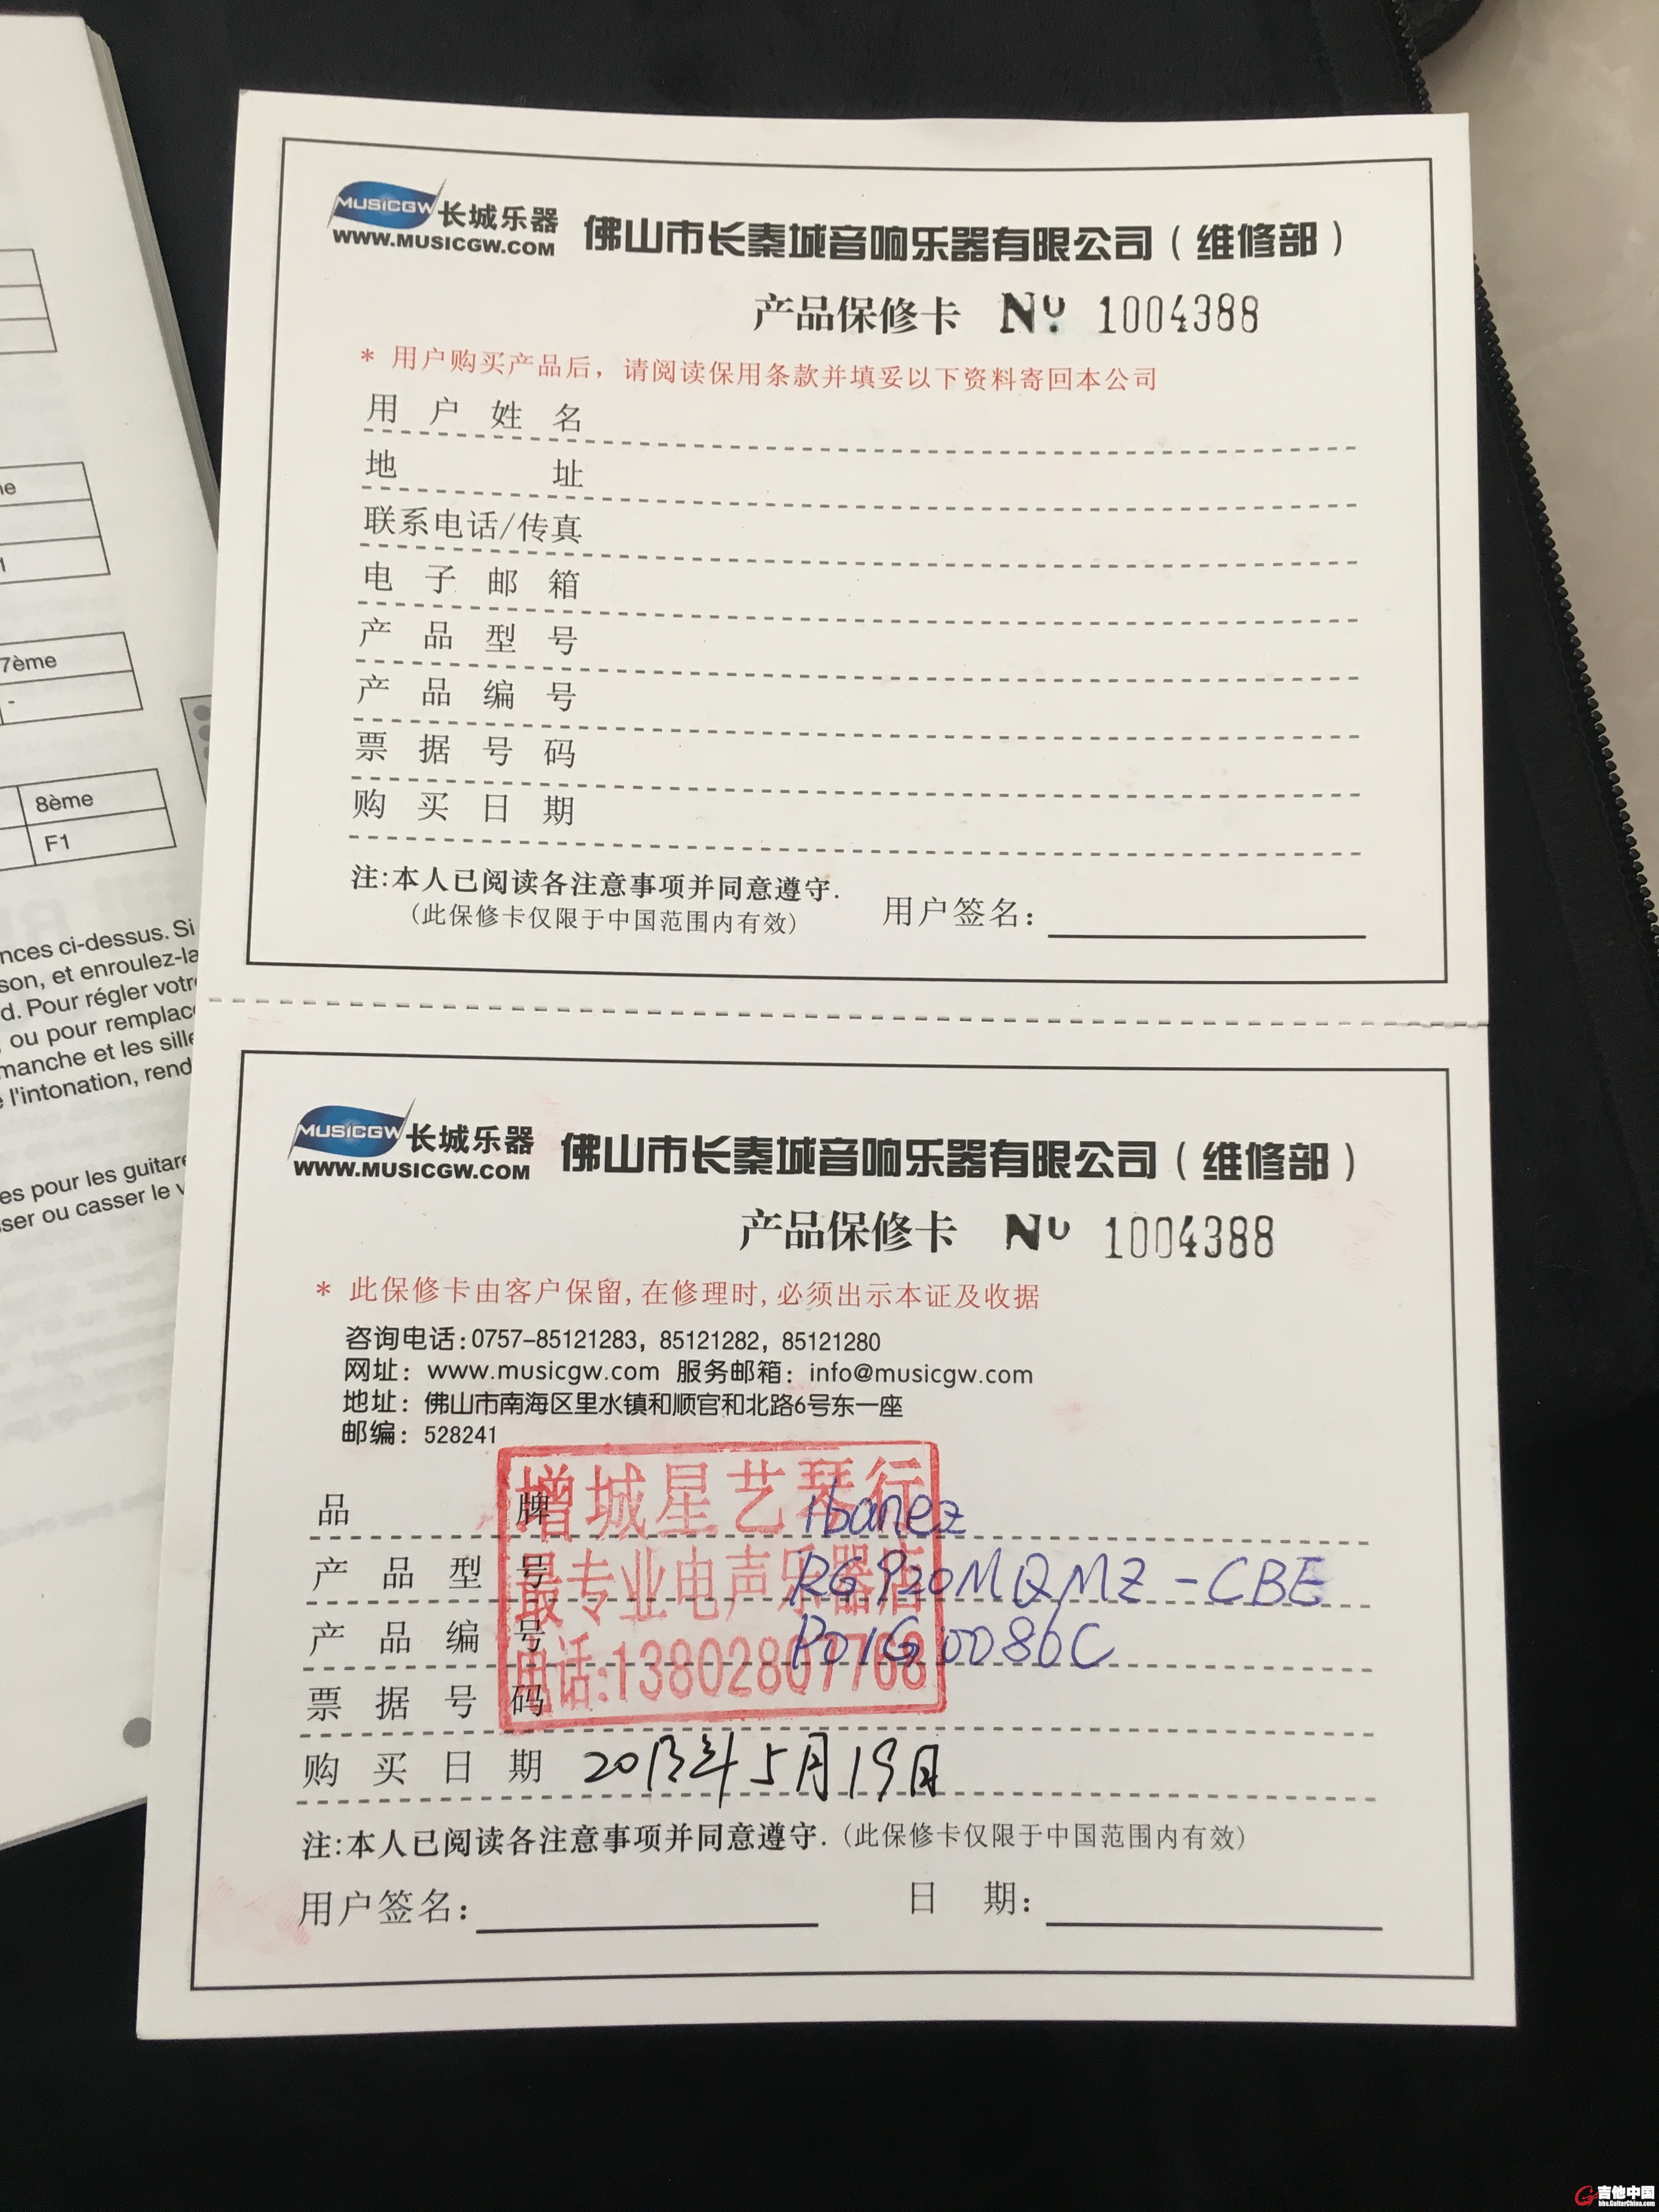 MUSICGW 长城乐器 佛山市长秦城音响乐器有限公司（维修部）
WWW.MUSICGW.COM
产品保修卡 No 1004388
* 用户购买产品后，请阅读保用条款并填妥以下资料寄回本公司
用户姓名
地址
联系电话/传真
电子邮箱
产品型号
产品编号
票据号码
购买日期
注:本人已阅读各注意事项并同意遵守.
(此保修卡仅限于中国范围内有效) 用户签名：
MUSICGW 长城乐器 佛山市长秦城音响乐器有限公司（维修部）
WWW.MUSICGW.COM
产品保修卡 No 1004388
* 此保修卡由客户保留,在修理时,必须出示本证及收据
咨询电话:0757-85121283，85121282，85121280
网址：www.musicgw.com 服务邮箱：info@musicgw.com
地址：佛山市南海区里水镇和顺官和北路6号东一座
邮编：528241
品牌 Ibanez
产品型号 RG920MQMZ-CBE
产品编号 P01G10086C
票据号码
购买日期 年5月19日
增城星艺琴行
最专业电声乐器店
电话:13802807768
注:本人已阅读各注意事项并同意遵守.(此保修卡仅限于中国范围内有效)
用户签名： 日期：
ne
1
7ème
-
8ème
F1
nces ci-dessus. Si
son, et enroulez-la
d. Pour régler votre
, ou pour remplace
manche et les sille
e l'intonation, rend
es pour les guitare
ser ou casser le v
吉他中国
bbs.GuitarChina.com